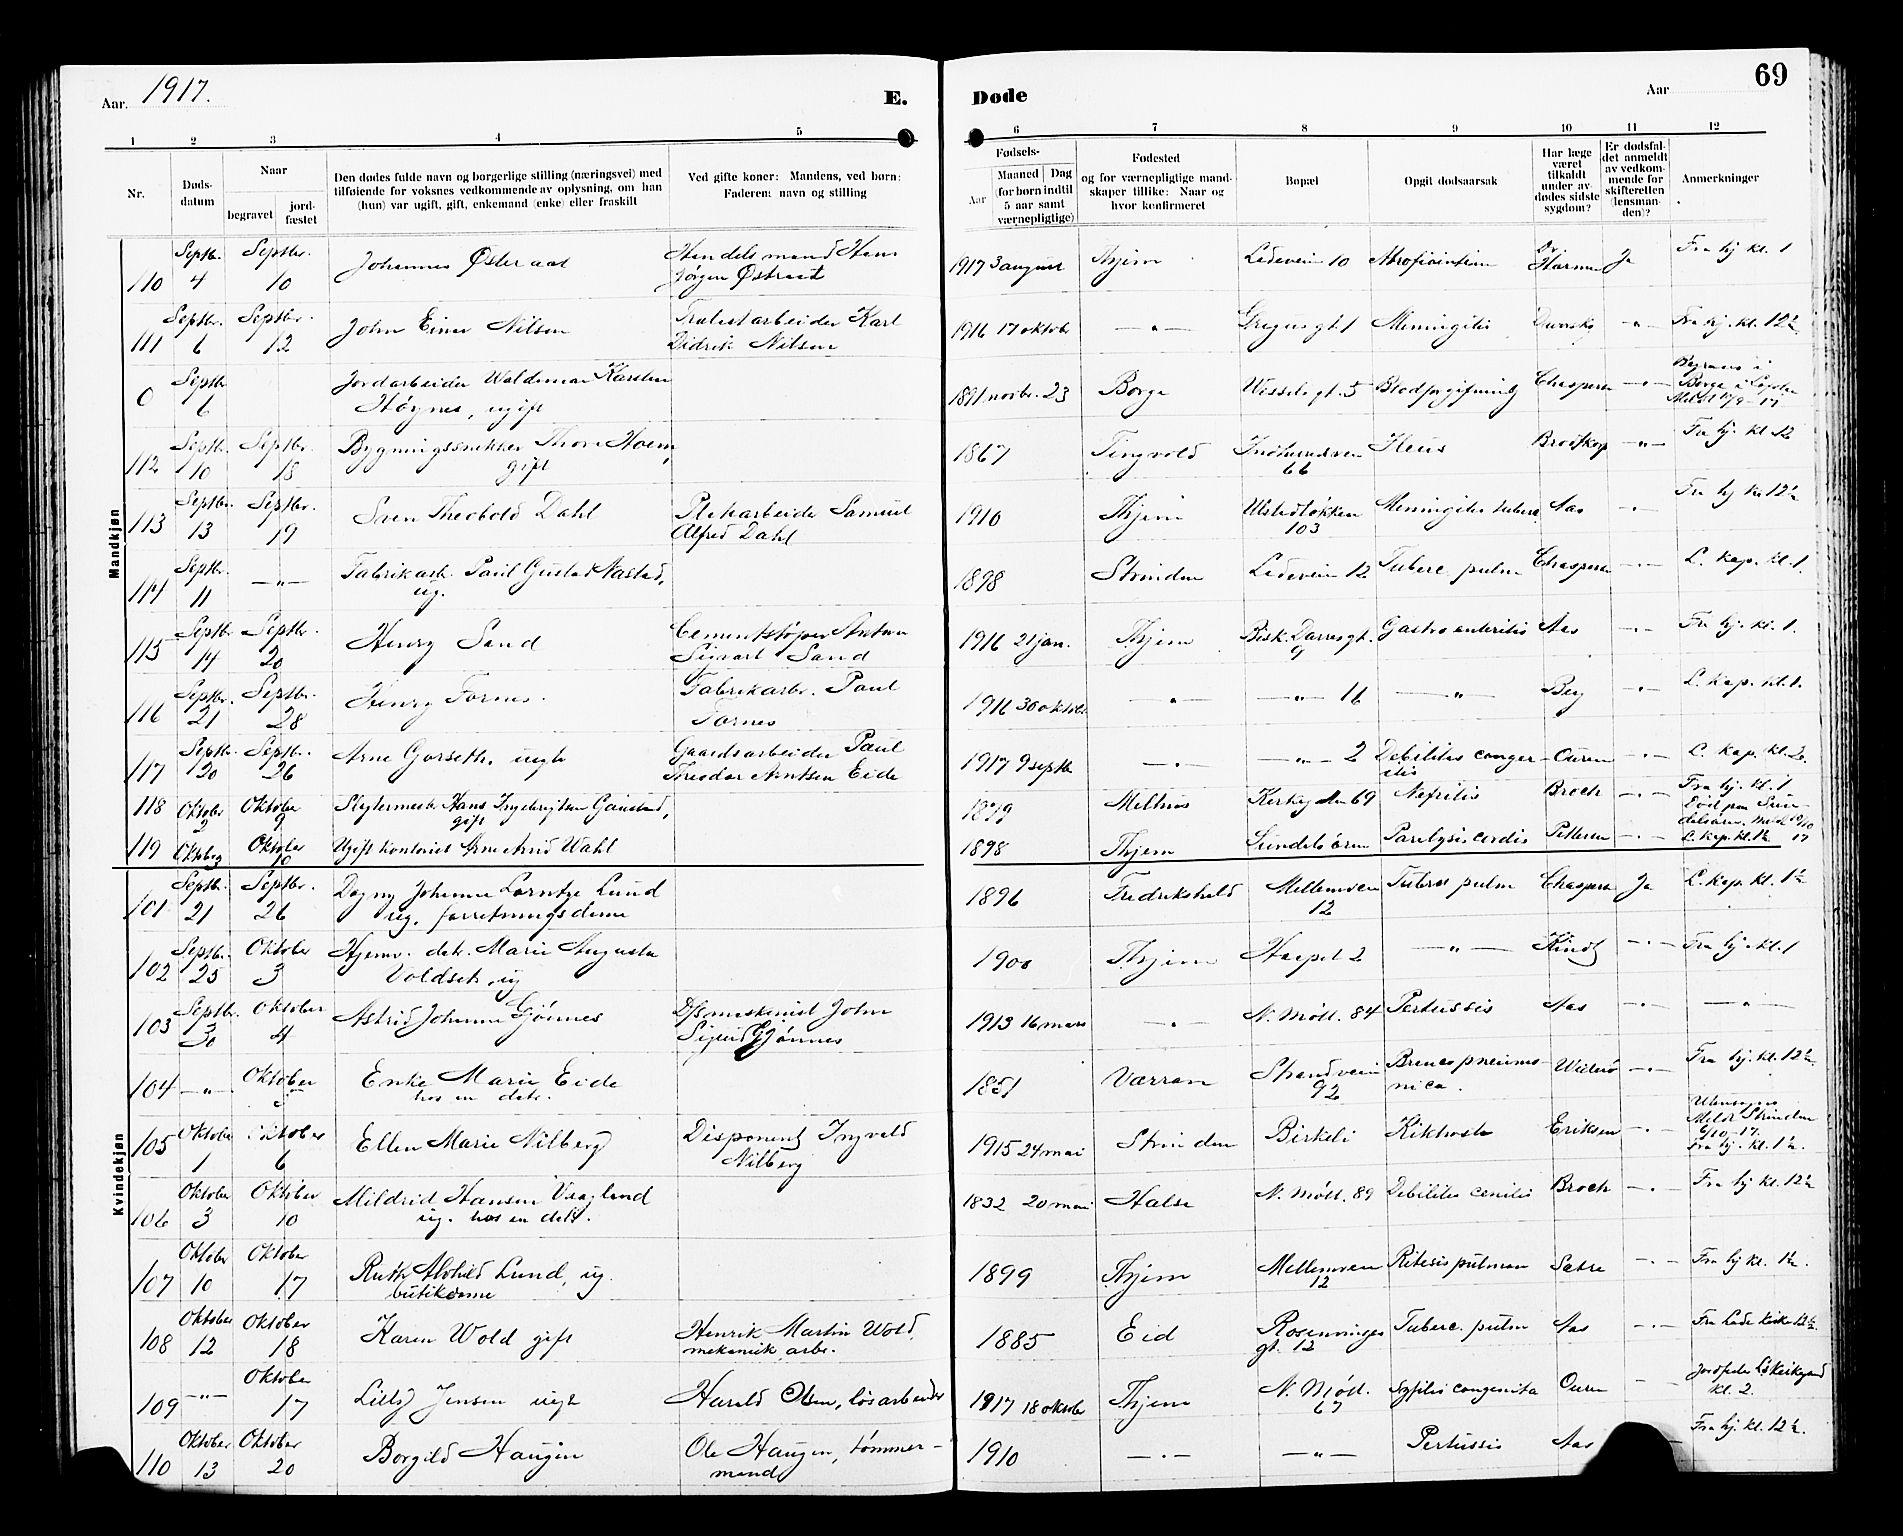 Aar. 1917.
E.
Døde
Aar
69
1 2 3 4 5 6 7 8 9 10 11 12
Nr.
Døds-
datum
Naar
begravet
jord-
fæstet
Den dødes fulde navn og borgerlige stilling (næringsvei) med
tilføiende for voksnes vedkommende av oplysning, om han
(hun) var ugift, gift, enkemand (enke) eller fraskilt
Ved gifte koner: Mandens, ved børn:
Faderen: navn og stilling
Fødsels-
Aar
Maaned
Dag
(for born indtil
5 aar samt
værnepligtige)
Fødested
og for værnepligtige mand-
skaper tillike: Naar og
hvor konfirmeret
Bopæl
Opgit dødsaarsak
Har læge
været
tilkaldt
under av-
dødes sidste
sygdom?
Er dødsfal-
det anmeldt
av vedkom-
mende for
skifteretten
(lensman-
den)?
Anmerkninger
Mandkjøn
110 Septbr. 4 Septbr. 10 Johannes Østeraat Handelsmand Hans
Jørgen Østraat 1917 3 august Thjem Ladeveien 10 Ja Fra hj kl. 1
111 Septbr. 6 Septbr. 12 John Einar Nilsen Karl
Didrik Nilsen 1916 17 oktobr —"— gt 1 Meningitis —"— Fra hj. kl. 12½
0 Septbr 6 Jordarbeider Waldemar Karsten
Høynes, ugift 1891 novbr. 23 Borge Wessels gt. 5 Blodforgiftning —"—
112 Septbr. 10 Septbr. 18 Bygningssnekker Thore Hoem,
gift 1867 Tingvold 66 Ileus —"— Fra hj. kl 12
113 Septbr. 13 Septbr. 19 Sven Theobold Dahl Samuel
Alfred Dahl 1910 Thjem 103 Meningitis tuberc. Aas —"— Fra hj kl 12½
114 Septbr. 11 —"— Fabrikarb. Paul Gustad Nastad,
ug. 1898 Strinden Ladeveien 12 Tuberc. pulm —"— L. kap. kl. 1.
115 Septbr. 14 Septbr. 20 Henry Sand Cementstøper Anton
Sigvart Sand 1916 21 jan. Thjem Bisk. Darres gt. 9 Gastro enteritis Aas —"— Fra hj. kl. 1.
116 Septbr. 21 Septbr. 28 Henry Fornes. Fabrikarbr. Paul
Fornes 1916 30 oktobr. —"— —"— 16 —"— Berg —"— L. kap. kl. 1.
117 Septbr. 20 Septbr. 26 Arne Garseth, uegte Gaardsarbeider Paul
Theodor Arntsen Eide 1917 9 septbr —"— —"— 2 Debilitas congen-
itis Ouren —"— L. kap. kl. 2.
118 Oktober 2 Oktober 9 Slagtermester Hans Ingebrigtsen Gaustad,
gift 1879 Melhus Kirkegaten 69 Nefritis Broch —"— Fra hj. kl. 1
119 Oktober 3 Oktober 10 Ugift kontorist Arne Arnd Wahl 1898 Thjem Paralysis cordis Petersen —"— L. kap. kl. 1½
Kvindekjøn
101 Septbr. 21 Septbr. 26 Dagny Johanne Lorntze Lund
ug. forretningsdame 1896 Fredrikshald Mellemveien
12 Tuberc pulm Ja L. kap. kl. 1½
102 Septbr. 25 Oktober 3 Hjemv. datr. Marie Augusta
Voldseth, ug 1900 Thjem 2 —"— Kindt —"— Fra hj. kl. 1
103 Septbr. 30 Oktober 4 Astrid Johanne Gjønnes Dfsmaskinist John
Sigurd Gjønnes 1913 16 mars —"— N. Møll. 84 Pertussis Aas —"— —"—
104 —"— Oktober 5 Enke Marie Eide
hos en datr. 1851 Værran Strandveien
92 Broncopneumo-
nica. —"— Fra hj. kl. 12½
105 Oktober 1 Oktober 6 Ellen Marie Nilberg Disponent Ingvald
Nilberg 1915 24 mai Strinden Birkeli Kikhoste Eriksen —"— Meldt Strinden
6/10 - 17.
Fra hj. kl. 1½.
106 Oktober 3 Oktober 10 Mildrid Hansen Vaagland
ug. hos en datr. 1832 20 mai Halse N. Møll. 89 Debilitas cenilis Broch —"— Fra hj kl. 12½
107 Oktober 10 Oktober 17 Ruth Alvhild Lund, ug.
butikdame 1899 Thjem Mellemveien
12 Sætre —"— Fra hj kl. 1½.
108 Oktober 12 Oktober 18 Karen Wold gift Henrik Martin Wold,
mekanisk arbr. 1885 Eid Rosenvinges
gt. 12 Tuberc. pulm Aas —"— Fra Lade kirke 12½
109 —"— Oktober 17 Lilly Jensen uegte Harald Olsen, løsarbeider 1917 18 oktobr Thjem N. Møll.
67 Syfilis congenita Ouren —"— kl. 2.
110 Oktober 13 Oktober 20 Borgild Haugen Ole Haugen, tømmer-
mand 1910 —"— —"— Pertussis Aas Fra hj. kl. 12½.